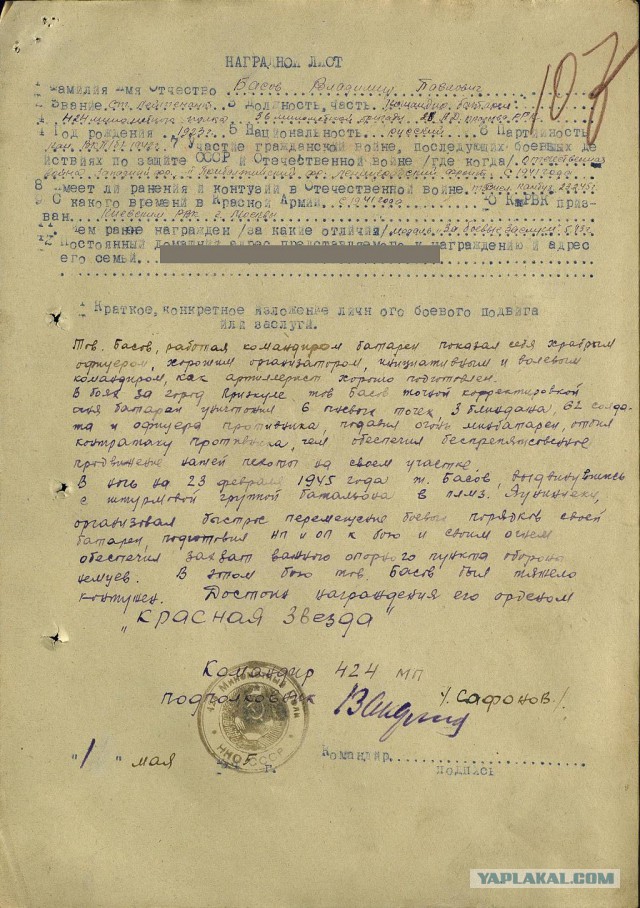 103
НАГРАДНОЙ ЛИСТ
Фамилия Имя Отчество Басов Владимир Павлович
2 Звание. Ст. Лейтенант 3 Должность, часть. Командир батареи
424 минометного полка 36 минометной бригады 28
4 Год рождения. 1923г. 5 Национальность русский 6 Партийность
7 Участие гражданской войне, последующих боевых де
йствиях по защите СССР и Отечественной войне /где когда/ Отечественная
война Западный фр. 2 Прибалтийский фр. Ленинградский фронт с 1941 года
8 Имеет ли ранения и контузии в Отечественной войне.
9 С какого времени в Красной Армии. с 1941 года 10 К РВК приз-
ван. Киевским РВК г. Москвы
11 Чем ранее награжден /за какие отличия/ медаль "За боевые заслуги"
12 Постоянный домашний адрес представляемого к награждению и адрес
его семьи.
Краткое, конкретное изложение личн ого боевого подвига
или заслуги.
Тов. Басов, работая командиром батареи показал себя храбрым
офицером, хорошим организатором, инициативным и волевым
командиром, как артиллерист хорошо подготовлен.
В боях за город Приекуле тов Басов точной корректировкой
огня батареи уничтожил 6 пулевых точек, 3 блиндажа, 62 солда-
та и офицера противника, подавил огонь минбатареи, отбил
контратаку противника, чем обеспечил беспрепятственное
продвижение нашей пехоты на своем участке.
В ночь на 23 февраля 1945 года т. Басов, выдвинувшись
с штурмовой группой батальона в
организовал быстрое перемещение боевых порядков своей
батареи, подготовил НП и ОП к бою и своим огнем
обеспечил захват важного опорного пункта обороны
немцев. В этом бою тов. Басов был тяжело
контужен. Достоин награждения его орденом
"Красная Звезда"
Командир 424 мп
подполковник /Сафонов/.
НКО СССР
" " мая 5 г. Командир
подпись
YAPLAKAL.COM